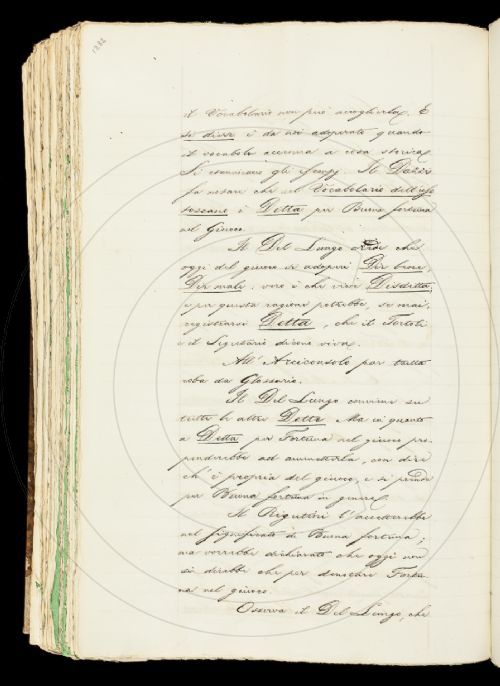 1282
il Vocabolario non può accoglierla. E
si disse è da noi adoperato quando
il vocabolo accenna a cosa storica
Si esaminano gli Esempj. Il Dazzi
fa notare che nel Vocabolario dell'uso
toscano è Detta per Buona fortuna
nel Giuoco.
Il Del Lungo dice che
oggi del giuoco si adopera Dir bene,
Dir male, vero è che vive Disdetta;
e per questa ragione potrebbe, se mai,
registrarsi Detta, che il Tortoli
e il Segretario dicono viva.
All'Arciconsolo par tutta
roba da Glossario.
Il Del Lungo conviene su
tutte le altre Detta. Ma in quanto
a Detta per Fortuna nel giuoco pro-
penderebbe ad ammetterla, con dire
ch'è propria del giuoco, e si prende
per Buona fortuna in genere.
Il Rigutini l'accetterebbe
nel significato di Buona fortuna;
ma vorrebbe dichiarato che oggi non
si direbbe che per denotare Fortu-
na nel giuoco.
Osserva il Del Lungo, che